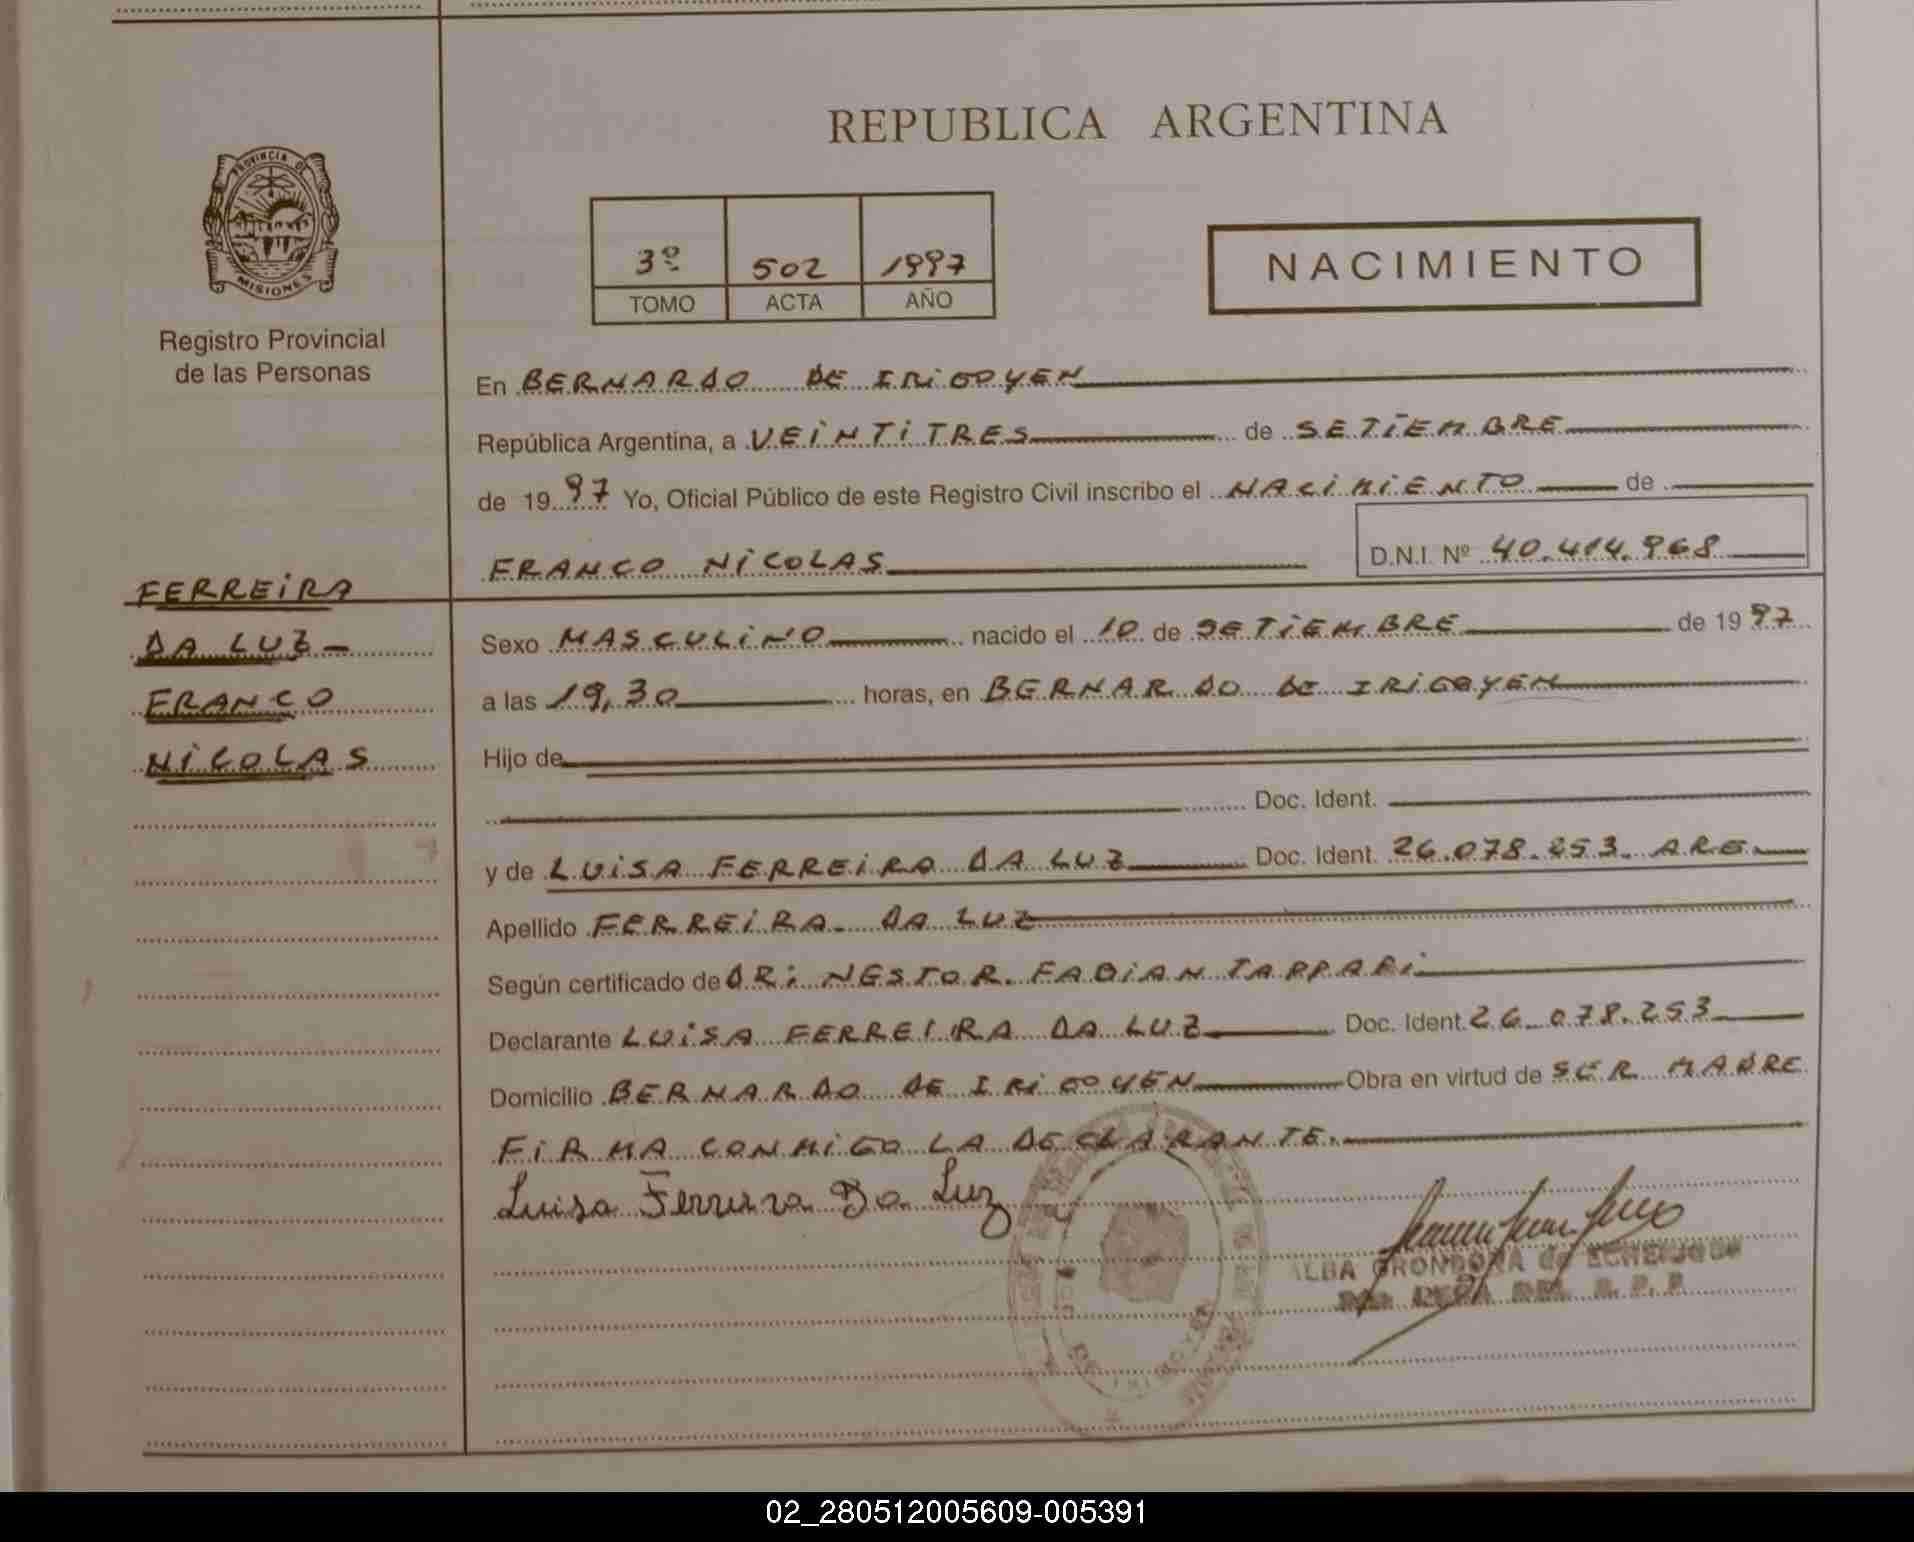 PROVINCIA DE
MISIONES
Registro Provincial
de las Personas
FERREIRA
DA LUZ -
FRANCO
NICOLAS
REPUBLICA ARGENTINA
3º 502 1997
TOMO ACTA AÑO
NACIMIENTO
En BERNARDO DE IRIGOYEN
República Argentina, a VEINTITRES de SETIEMBRE
de 1997 Yo, Oficial Público de este Registro Civil inscribo el NACIMIENTO de
FRANCO NICOLAS
D.N.I. Nº 40.414.968
Sexo MASCULINO nacido el 10 de SETIEMBRE de 1997
a las 19,30 horas, en BERNARDO DE IRIGOYEN
Hijo de
Doc. Ident.
y de LUISA FERREIRA DA LUZ Doc. Ident. 26.078.253. ARG.
Apellido FERREIRA DA LUZ
Según certificado de DR: NESTOR FABIAN
Declarante LUISA FERREIRA DA LUZ Doc. Ident. 26.078.253
Domicilio BERNARDO DE IRIGOYEN Obra en virtud de SER MADRE
FIRMA CONMIGO LA DECLARANTE.
Luisa Ferreira Da Luz
ALBA GRONDONA de
02_280512005609-005391